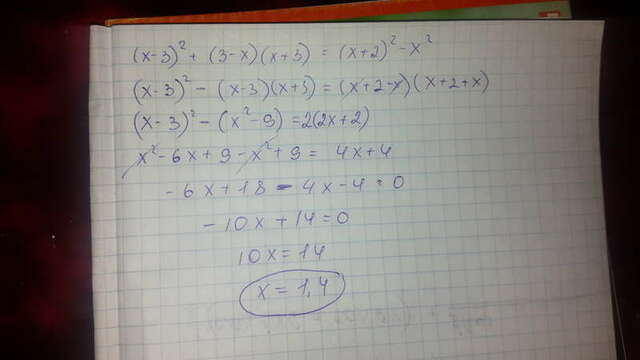 (x-3)² + (3-x)(x+3) = (x+2)² - x²
(x-3)² - (x-3)(x+3) = (x+2-x)(x+2+x)
(x-3)² - (x²-9) = 2(2x+2)
x² - 6x + 9 - x² + 9 = 4x + 4
- 6x + 18 - 4x - 4 = 0
- 10x + 14 = 0
10x = 14
x = 1,4